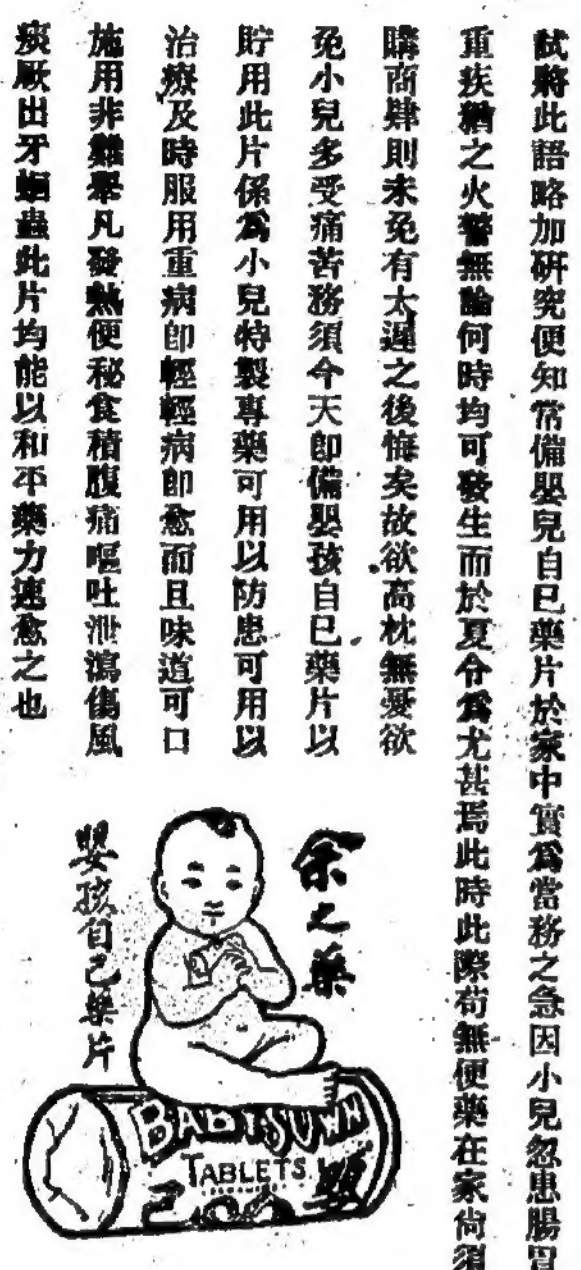 試將此語略加研究便知常備嬰兒自已藥片於家中實爲當務之急因小兒忽患腸胃
重疾猶之火警無論何時均可發生而於夏令爲尤甚焉此時此際苟無便藥在家尙須
購商肆則未免有太遲之後悔矣故欲高枕無憂欲
免小兒多受痛苦務須今天卽備嬰孩自已藥片以
貯用此片係爲小兒特製專藥可用以防患可用以
治療及時服用重病卽輕輕病卽愈而且味道可口
施用非難舉凡發熱便秘食積腹痛嘔吐泄瀉傷風
痰厥出牙蛔蟲此片均能以和平藥力速愈之也
余之藥
嬰孩自己藥片
BABY'S OWN
TABLETS